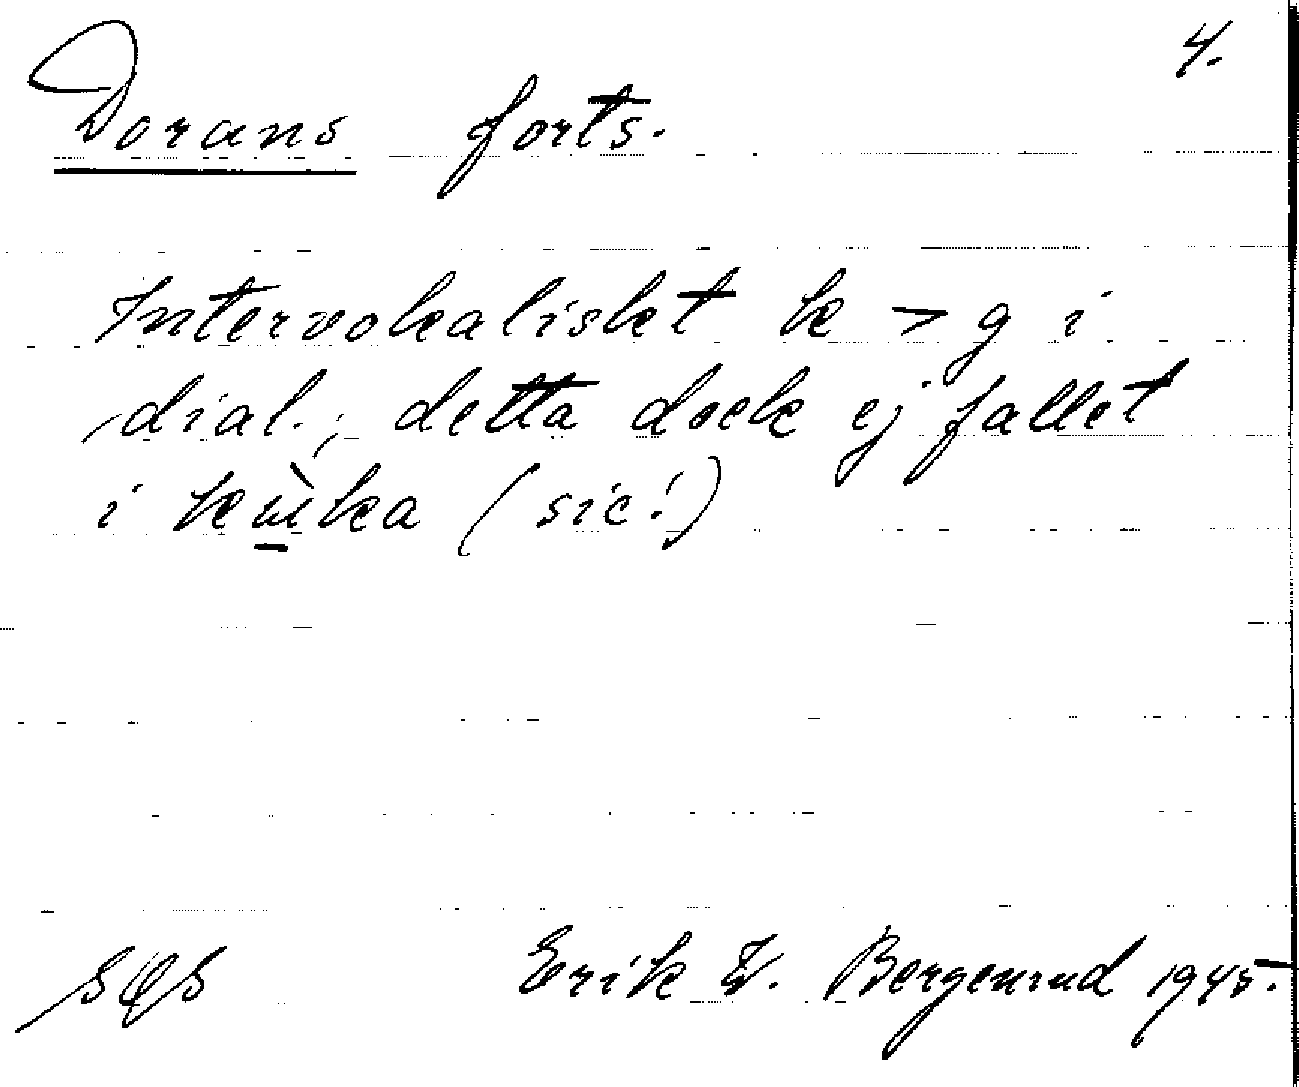 4.
Dorans forts.
Intervokaliskt k > g i
dial.; detta dock ej fallet
i (sic!)
Erik W. Bergenrud 1945.